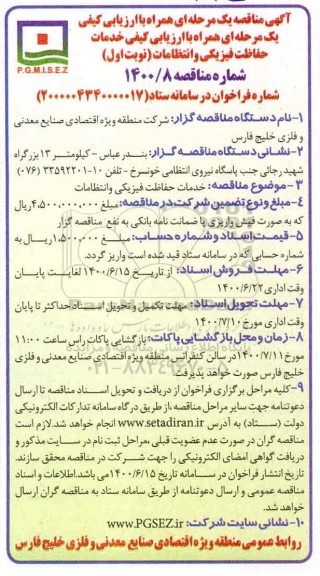 آگهی مناقصه یک مرحله ای همراه با ارزیابی کیفی
یک مرحله ای همراه با ارزیابی کیفی خدمات
حفاظت فیزیکی و انتظامات (نوبت اول)
P.G.M.I.S.E.Z
شماره مناقصه ۱۴۰۰/۸
شماره فراخوان در سامانه ستاد (۲۰۰۰۰۰۴۳۴۰۰۰۰۱۷)
۱- نام دستگاه مناقصه گزار: شرکت منطقه ویژه اقتصادی صنایع معدنی
و فلزی خلیج فارس
۲- نشانی دستگاه مناقصه گزار: بندرعباس - کیلومتر ۱۳ بزرگراه
شهید رجائی جنب پاسگاه نیروی انتظامی خونسرخ - تلفن ۱۰-۳۳۵۹۲۲۰۱ (۰۷۶)
۳- موضوع مناقصه: خدمات حفاظت فیزیکی وانتظامات
۴- مبلغ و نوع تضمین شرکت در مناقصه: مبلغ ۴,۵۰۰,۰۰۰,۰۰۰ ریال
که به صورت فیش واریزی یا ضمانت نامه بانکی به نفع مناقصه گزار
۵- قیمت اسناد و شماره حساب: مبلغ ۱,۵۰۰,۰۰۰ ریال به
شماره حسابی که در سامانه ستاد قید شده است واریز گردد.
۶- مهلت فروش اسناد: از تاریخ ۱۴۰۰/۶/۱۵ لغایت پایان
وقت اداری ۱۴۰۰/۶/۲۲
۷- مهلت تحویل اسناد: مهلت تکمیل و تحویل اسناد حداکثر تا پایان
وقت اداری مورخ ۱۴۰۰/۷/۱۰
۸- زمان و محل بازگشایی پاکات: بازگشایی پاکات راس ساعت ۱۱:۰۰
مورخ ۱۴۰۰/۷/۱۱ در سالن کنفرانس منطقه ویژه اقتصادی صنایع معدنی و فلزی
خلیج فارس صورت خواهد پذیرفت
۹- کلیه مراحل برگزاری فراخوان از دریافت و تحویل اسناد مناقصه تا ارسال
دعوتنامه جهت سایر مراحل مناقصه از طریق درگاه سامانه تدارکات الکترونیکی
دولت (ستاد) به آدرس www.setadiran.ir انجام خواهد شد. لازم است
مناقصه گران در صورت عدم عضویت قبلی، مراحل ثبت نام در سایت مذکور و
دریافت گواهی امضای الکترونیکی را جهت شرکت در مناقصه محقق سازند.
تاریخ انتشار فراخوان در سامانه تاریخ ۱۴۰۰/۶/۱۵ می باشد. اطلاعات و اسناد
مناقصه عمومی و ارسال دعوتنامه از طریق سامانه ستاد به مناقصه گران ارسال
خواهد شد.
۱۰- نشانی سایت شرکت: WWW.PGSEZ.ir
روابط عمومی منطقه ویژه اقتصادی صنایع معدنی و فلزی خلیج فارس